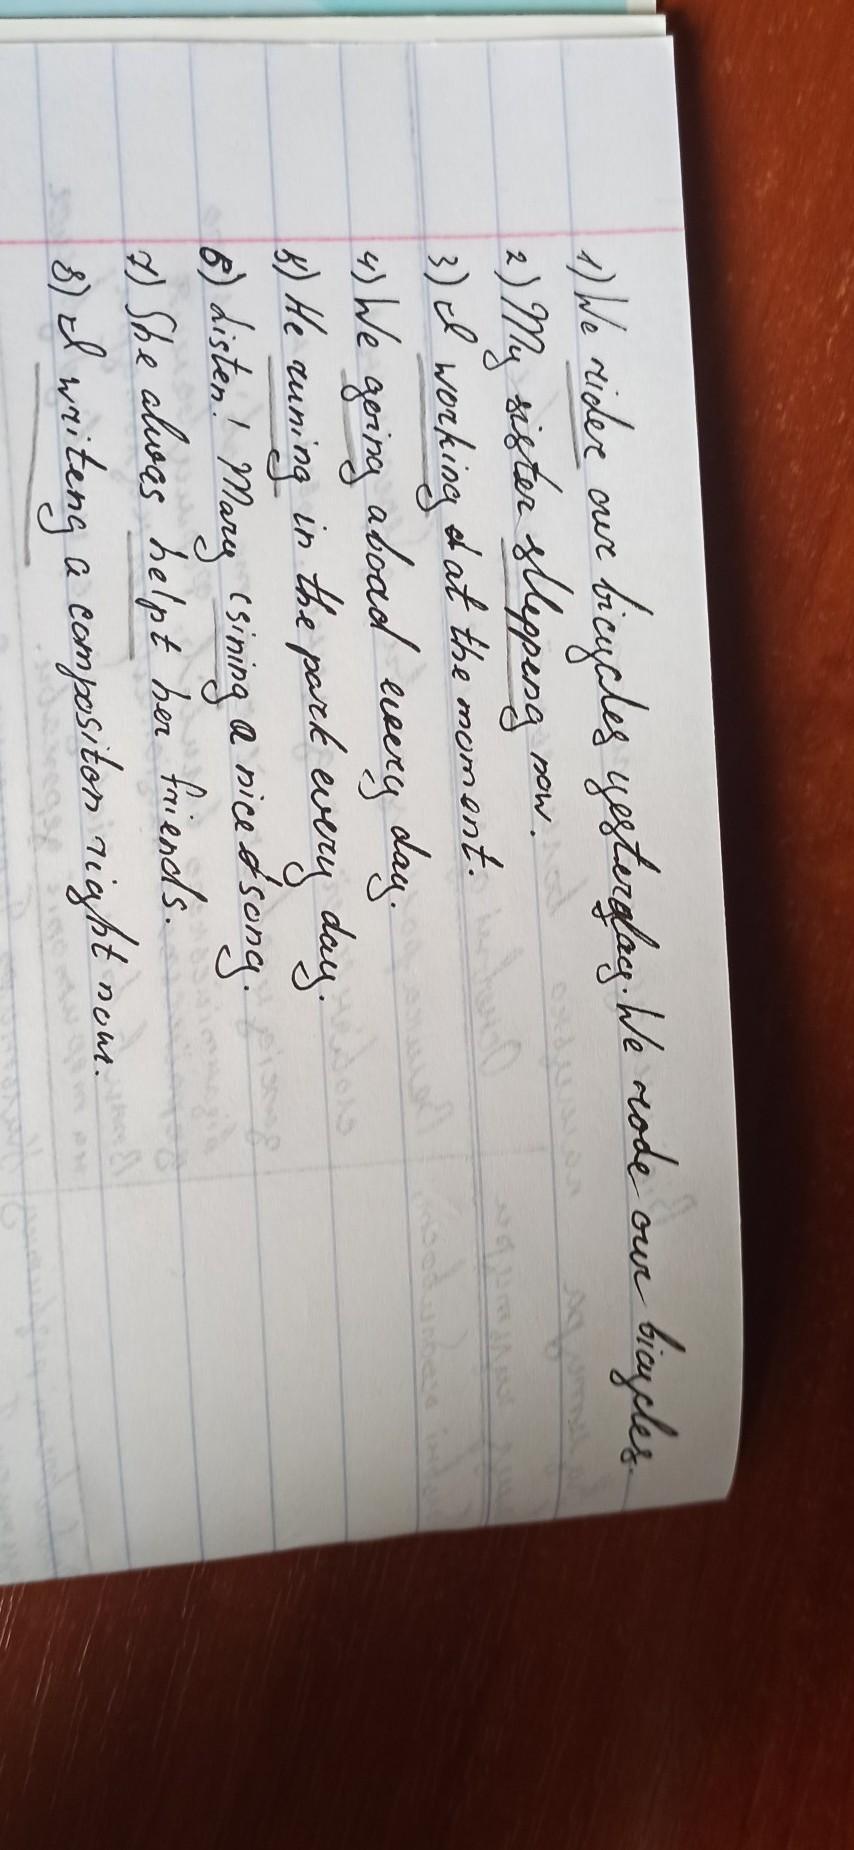 1) We rider our bicycles yesterday. We rode our bicycles.
2) My sister sleppeng now.
3) I working at the moment.
4) We going aboad every day.
5) He runing in the park every day.
6) Listen! Mary sining a nice song.
7) She alwas helpt her friends.
8) I writeng a compositon right now.